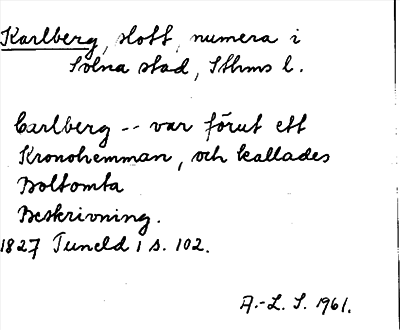 Karlberg, slott, numera i
Solna stad, Sthms l.
Carlberg -- var förut ett
Kronohemman, och kallades
Boltomta
Beskrivning.
1827 Tuneld 1 s. 102.
A.-L. S. 1961.